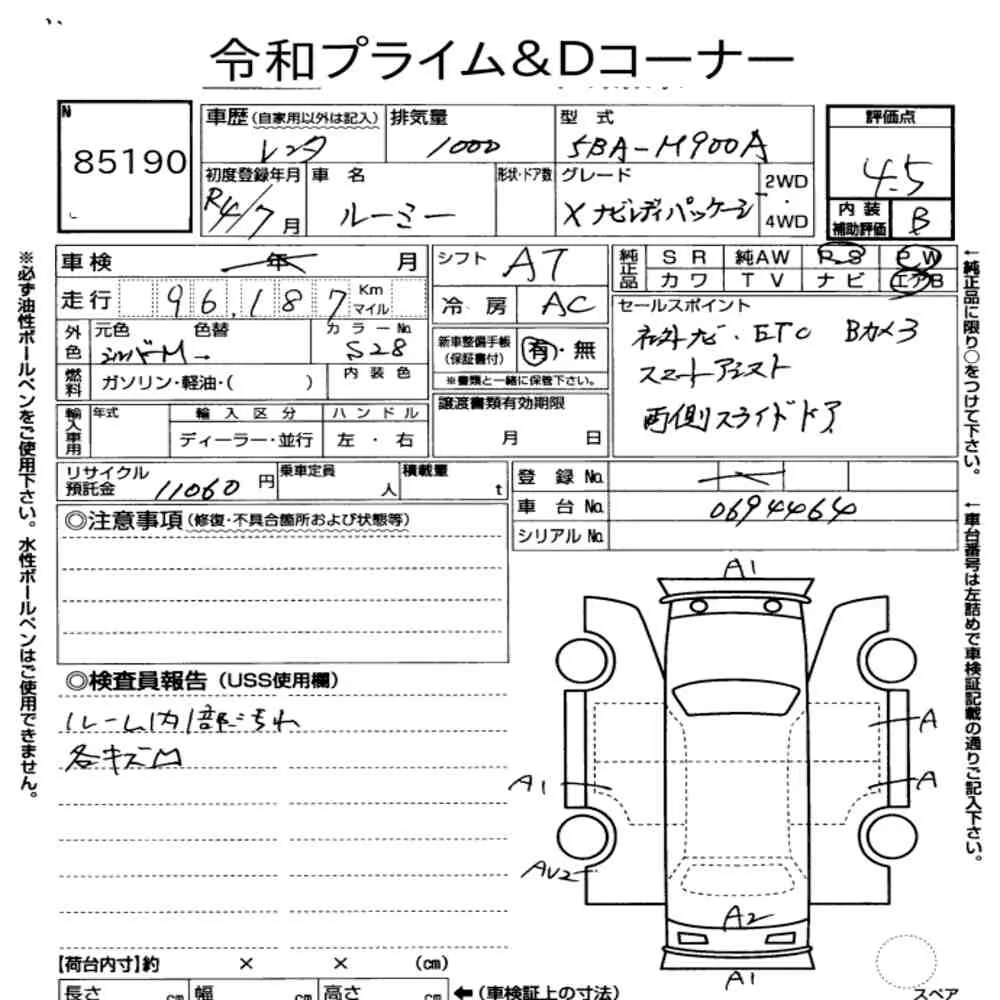 令和プライム&Dコーナー
N
85190
車歴(自家用以外は記入)
レンタ
排気量
1000
型式
5BA-M900A
評価点
4.5
初度登録年月
R4/7月
車名
ルーミー
形状・ドア数
グレード
X ナビレディパッケージ
2WD
・
4WD
内装
補助評価
B
車検 年 月
シフト
AT
純正品
SR 純AW PS PW
カワ TV ナビ エアB
走行 96,187 Km マイル
冷房
AC
セールスポイント
社外ナビ・ETC Bカメラ
スマートアシスト
両側スライドドア
外色
元色 色替
シルバーM→
カラーNo.
S28
新車整備手帳
(保証書付)
有・無
※書類と一緒に保管下さい。
燃料
ガソリン・軽油・( )
内装色
輸入車用
年式
輸入区分
ハンドル
ディーラー・並行
左・右
譲渡書類有効期限
月 日
リサイクル
預託金
11060円
乗車定員
人
積載量
t
登録No.
車台No.
0694464
シリアルNo.
◎注意事項(修復・不具合箇所および状態等)
◎検査員報告(USS使用欄)
ルーム内1部汚れ
各キズ凹
A1
A
A
A1
AU2
A2
A1
スペア
【荷台内寸】約 × × (cm)
長さ cm 幅 cm 高さ cm ←(車検証上の寸法)
※必ず油性ボールペンをご使用下さい。水性ボールペンはご使用できません。
←純正品に限り○をつけて下さい。
←車台番号は左詰めで車検証記載の通りご記入下さい。